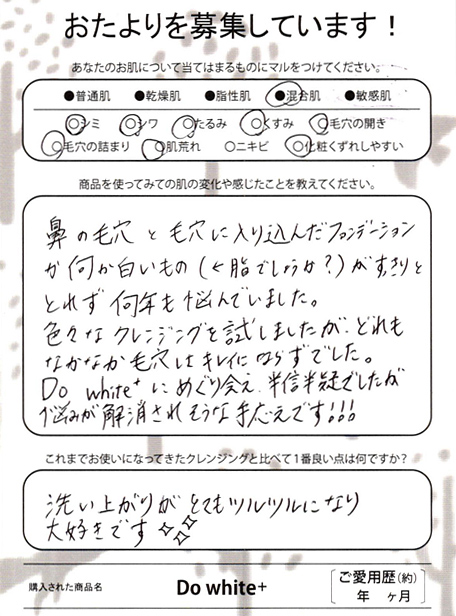 おたよりを募集しています！
あなたのお肌について当てはまるものにマルをつけてください。
●普通肌 ●乾燥肌 ●脂性肌 ●混合肌 ●敏感肌
○シミ ○シワ ○たるみ ○くすみ ○毛穴の開き
○毛穴の詰まり ○肌荒れ ○ニキビ ○化粧くずれしやすい
商品を使ってみての肌の変化や感じたことを教えてください。
鼻の毛穴と毛穴に入り込んだファンデーション
か何か白いもの(←脂でしょうか？)がすっきりと
とれず何年も悩んでいました。
色々なクレンジングを試しましたが、どれも
なかなか毛穴はキレイにならずでした。
Do white+にめぐり会え、半信半疑でしたが
悩みが解消されそうな手応えです!!!
これまでお使いになってきたクレンジングと比べて1番良い点は何ですか？
洗い上がりがとてもツルツルになり
大好きです
購入された商品名 Do white+ ご愛用歴(約)
年 ヶ月